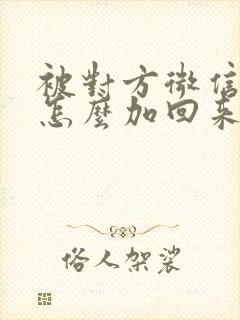 被對方微信
怎麼加回來
俗人架裟